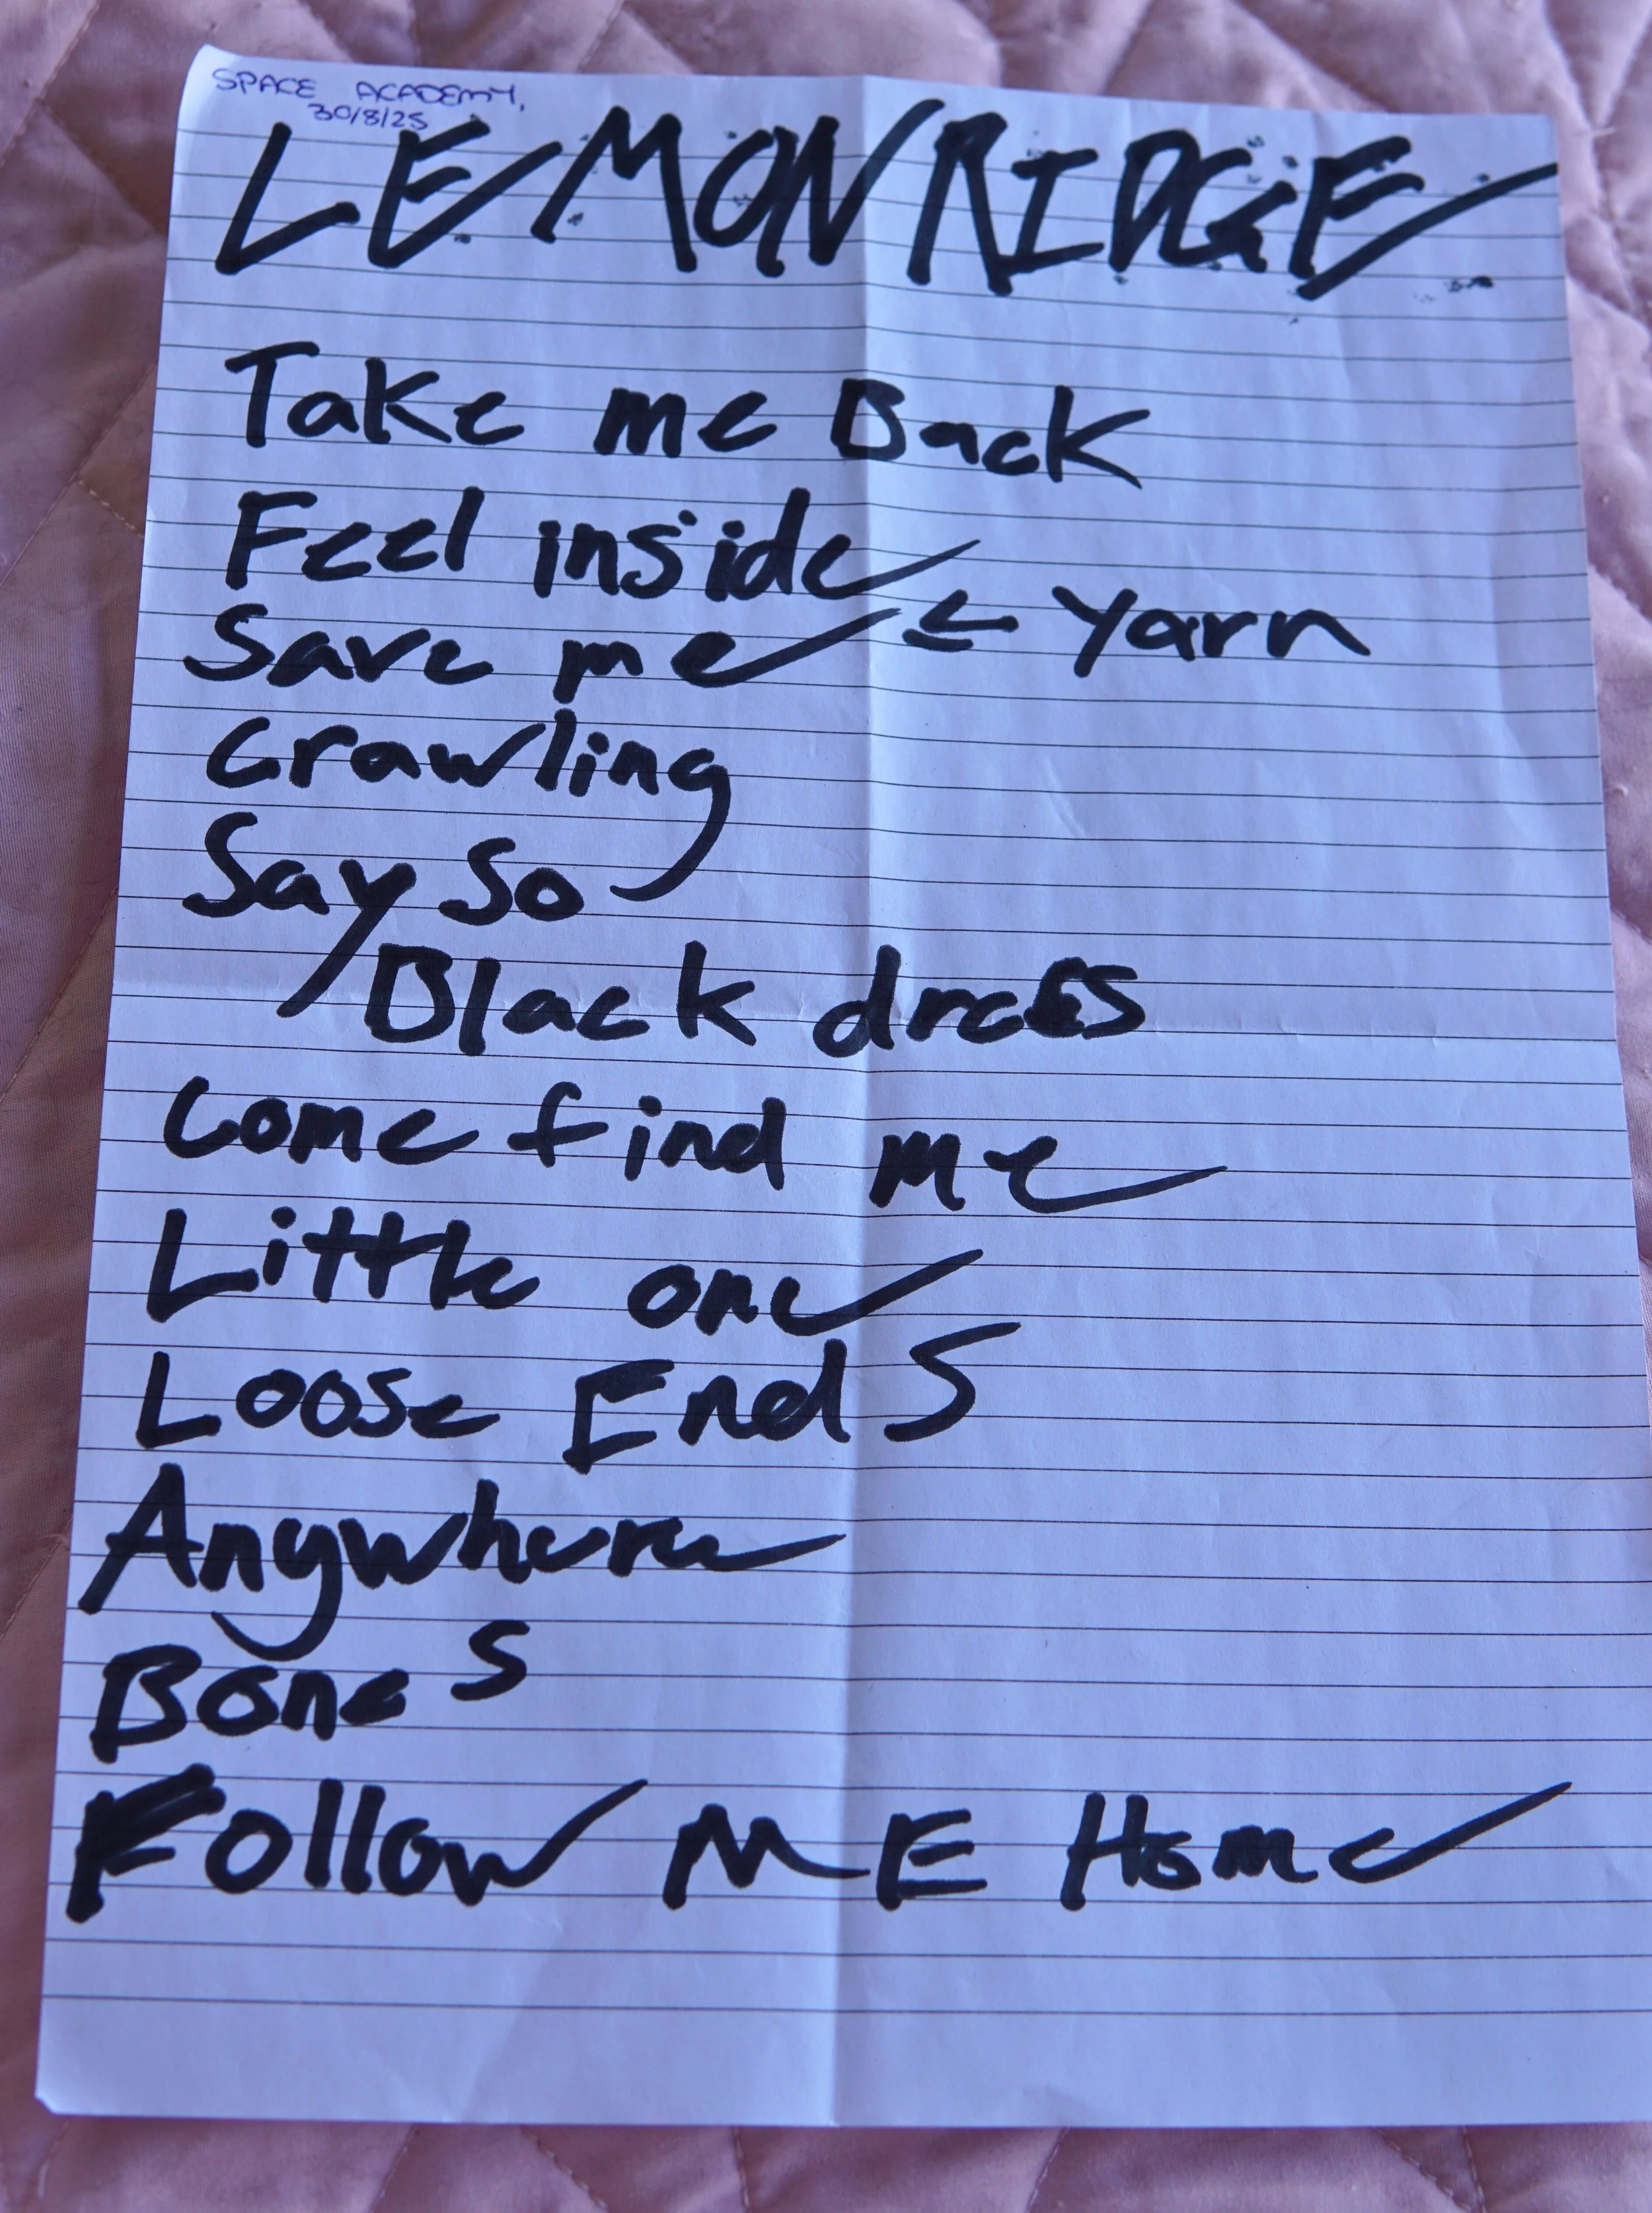 SPACE ACADEMY,
30/8/25
LEMON RIDGE
Take me Back
Feel inside
← Yarn
Save me
Crawling
Say So
Black dress
Come find me
Little one
Loose Ends
Anywhere
Bones
Follow ME Home